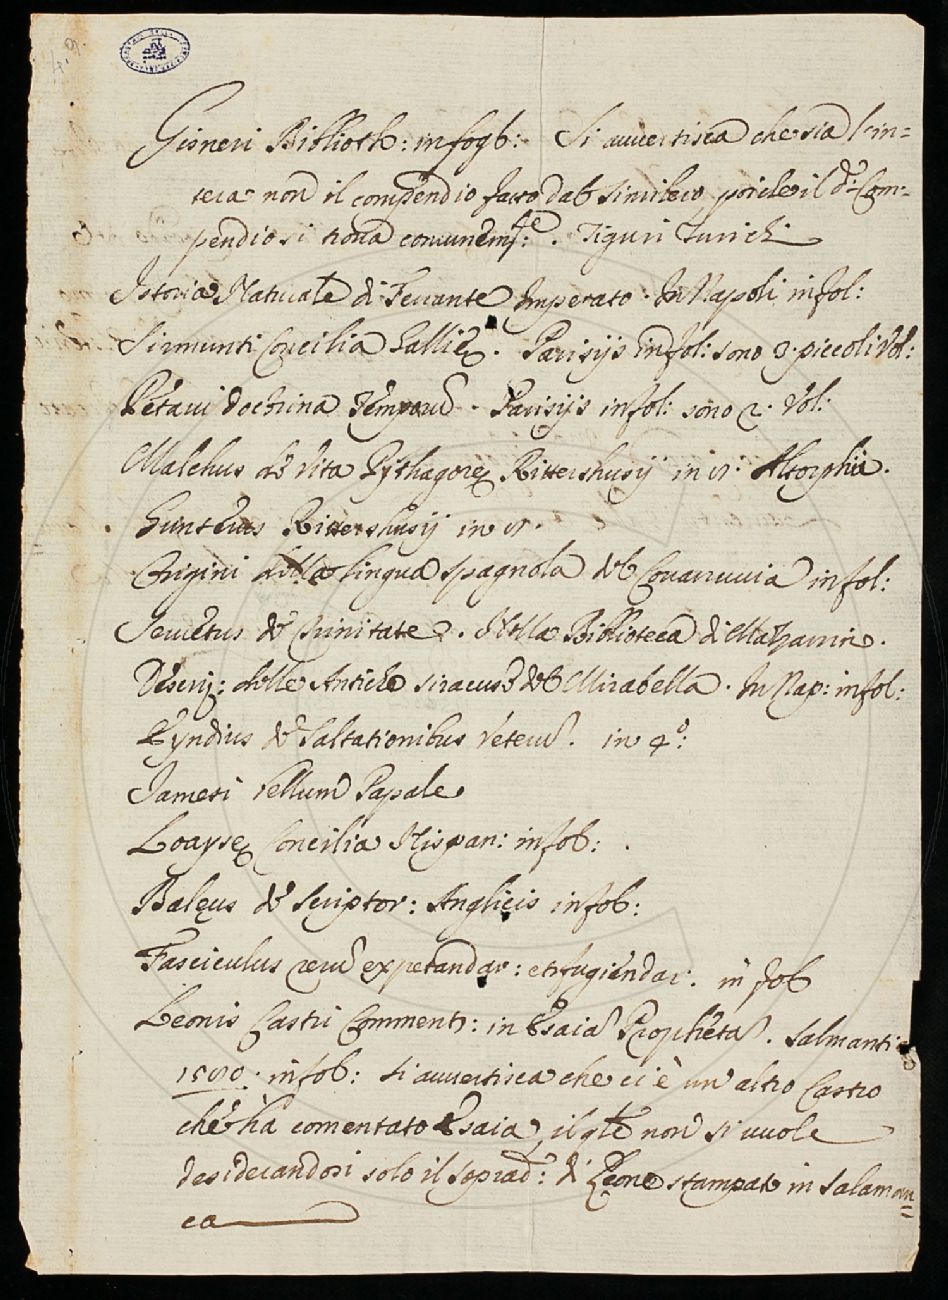 Gisneri Biblioth: in fogl: Si auuertisca che sia l'in=
tera non il compendio fatto dal Simlero poiche il d.º Com=
pendio si troua comunem.te: . Tiguri Zurich
Istoria Naturale di Ferrante Imperato. In Napoli in fol:
Sirmunti Concilia Galliæ. Parisijs in fol: sono 3. piccoli Vol:
Petaui doctrina Temporũ. Parisijs in fol: sono 2. Vol:
Malchus de Vita Pythagoræ Rittershusij in Altorphii.
Gunterus Rittershusij in
Origini della lingua spagnola del Couarruuia in fol:
Seruetus de Trinitate. Nella Biblioteca di Mazzarini.
Descriz: delle Antiche Siracuse del Mirabella. In Nap: in fol:
de Saltationibus Veterũ. in 4º:
Jamesi Bellum Papale
Loaysæ Concilia Hispan: in fol: .
Baleus de Scriptor: Anglicis in fol:
Fasciculus rerũ expetendar: et fugiendar: in fol
Leonis Castri Comment: in Esaiã Prophetã. Salmanti:
in fol: si auuertisca che ci è un altro Castro
che hà comentato Esaia, il qle non si uuole
desiderandosi solo il soprad: di Leone stampato in Salaman
ca